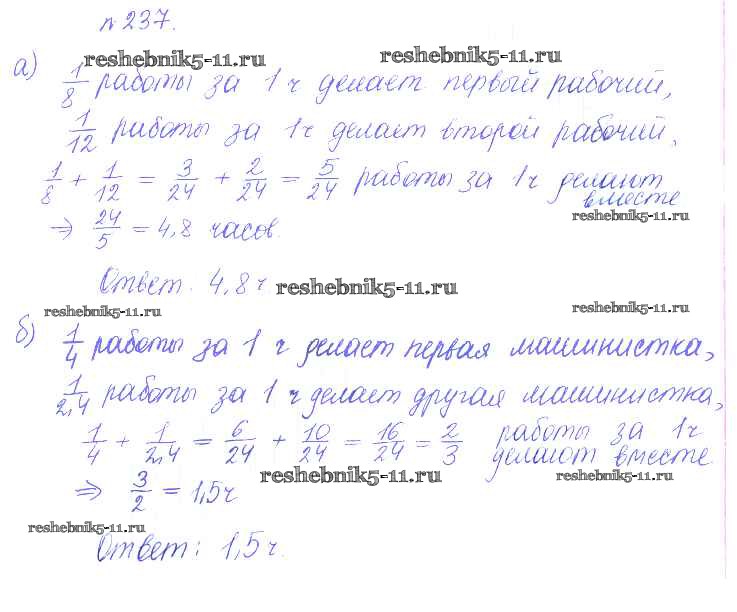 № 237.
reshebnik5-11.ru reshebnik5-11.ru
а) 1/8 работы за 1 ч делает первый рабочий,
1/12 работы за 1 ч делает второй рабочий,
1/8 + 1/12 = 3/24 + 2/24 = 5/24 работы за 1 ч делают
вместе
reshebnik5-11.ru
⇒ 24/5 = 4,8 часов.
Ответ. 4,8 ч reshebnik5-11.ru
reshebnik5-11.ru reshebnik5-11.ru
б) 1/4 работы за 1 ч делает первая машинистка,
1/2,4 работы за 1 ч делает другая машинистка,
1/4 + 1/2,4 = 6/24 + 10/24 = 16/24 = 2/3 работы за 1 ч
делают вместе.
reshebnik5-11.ru reshebnik5-11.ru
⇒ 3/2 = 1,5 ч
reshebnik5-11.ru
Ответ: 1,5 ч.